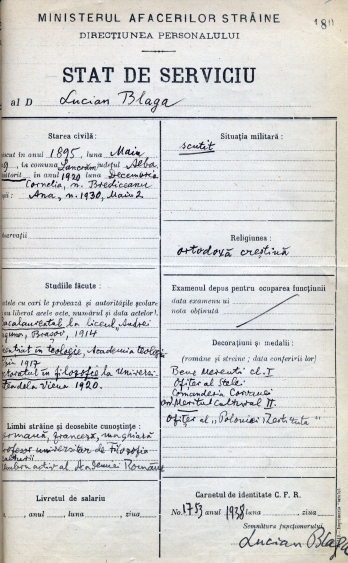 MINISTERUL AFACERILOR STRĂINE
DIRECȚIUNEA PERSONALULUI
STAT DE SERVICIU
al D Lucian Blaga
Starea civilă:
scut în anul 1895, luna Maiu
9, în comuna Lancrăm județul Alba.
ăsătorit în anul 1920 luna Decembrie
Cornelia, n. Brediceanu
Ana, n. 1930, Maiu 2.
Studiile făcute:
tele cu cari le probează și autoritățile școlare
au liberat acele acte, numărul și data actelor).
acalaureatul la liceul „Andrei
Brașov, 1914
Teologie, Academia teologică
1917
în filosofie la Universi-
tatea dela Viena 1920.
Limbi străine și deosebite cunoștințe:
germană, franceză, maghiară
rofesor universitar de Filosofia
culturii
embru activ al Academiei Române
Livretul de salariu
, anul , luna , ziua
Situația militară:
scutit
Religiunea:
ortodoxă creștină
Examenul depus pentru ocuparea funcțiunii
data examenului
nota obținută
Decorațiuni și medalii:
(române și streine; data conferirii lor)
Bene Merenti cl. I
Ofițer al Stelei
Comanderia Coroanei
Meritul Cultural II.
Ofițer al „Polonia Restituta"
Carnetul de identitate C. F. R.
No. 1759 anul 1938 luna , ziua
Semnătura funcționarului
Lucian Blaga